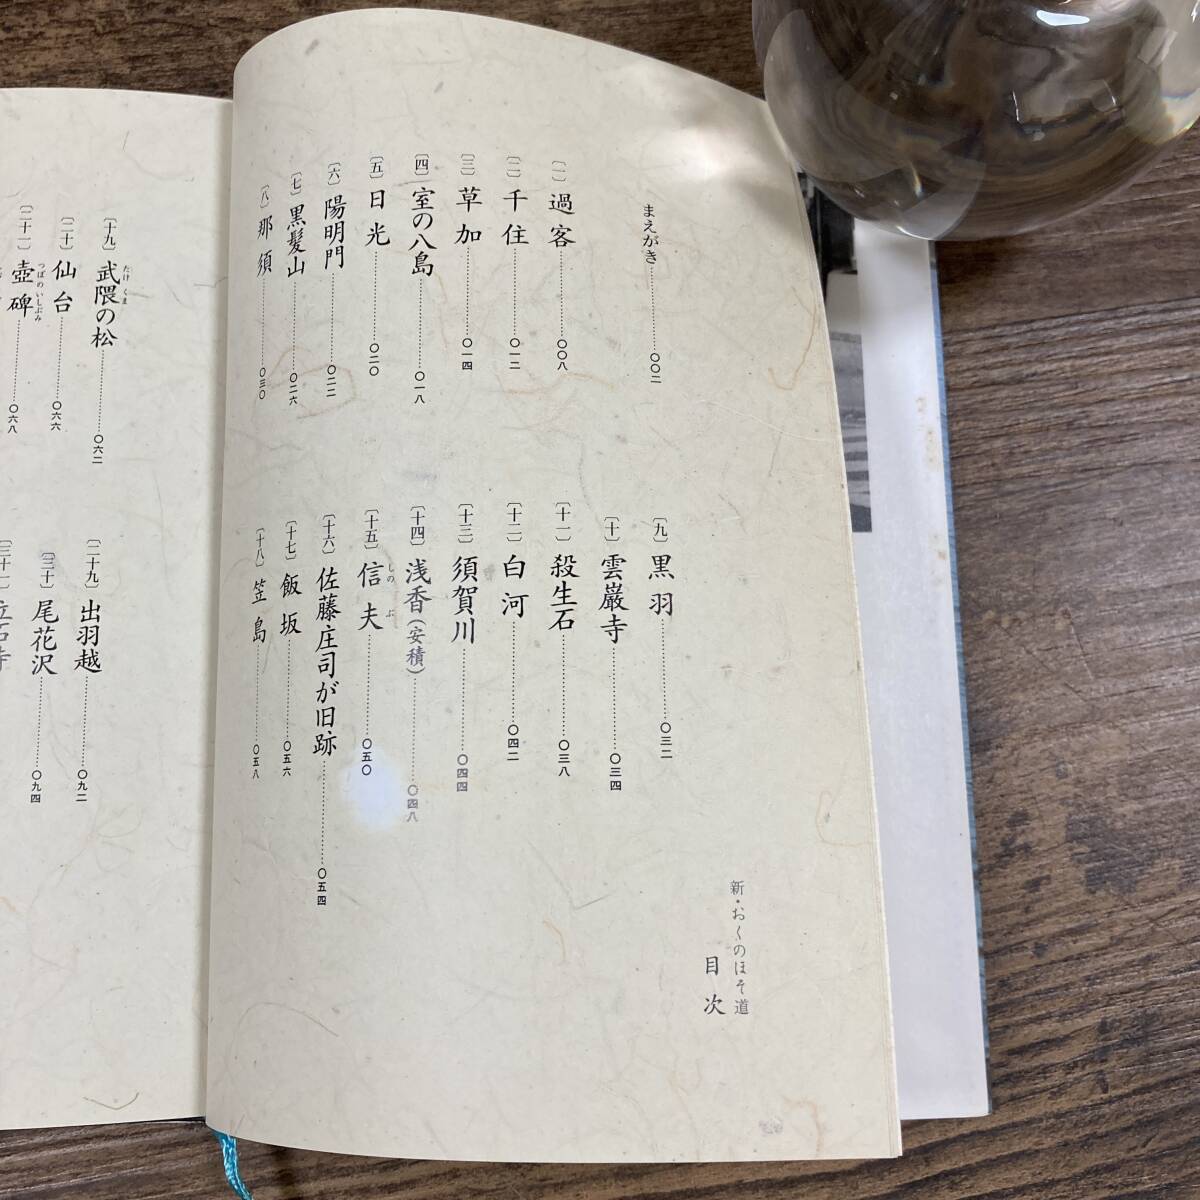 新・おくのほそ道
目次
まえがき……〇〇二
〔一〕過客……〇〇八
〔二〕千住……〇一二
〔三〕草加……〇一四
〔四〕室の八島……〇一八
〔五〕日光……〇二〇
〔六〕陽明門……〇二二
〔七〕黒髪山……〇二六
〔八〕那須……〇三〇
〔九〕黒羽……〇三二
〔十〕雲巌寺……〇三四
〔十一〕殺生石……〇三八
〔十二〕白河……〇四二
〔十三〕須賀川……〇四四
〔十四〕浅香(安積)……〇四八
〔十五〕信夫……〇五〇
しのぶ
〔十六〕佐藤庄司が旧跡……〇五四
〔十七〕飯坂……〇五六
〔十八〕笠島……〇五八
〔十九〕武隈の松……〇六二
たけくま
〔二十〕仙台……〇六六
〔二十一〕壺碑……〇六八
つぼのいしぶみ
〔二十九〕出羽越……〇九二
〔三十〕尾花沢……〇九四
〔三十一〕立石寺